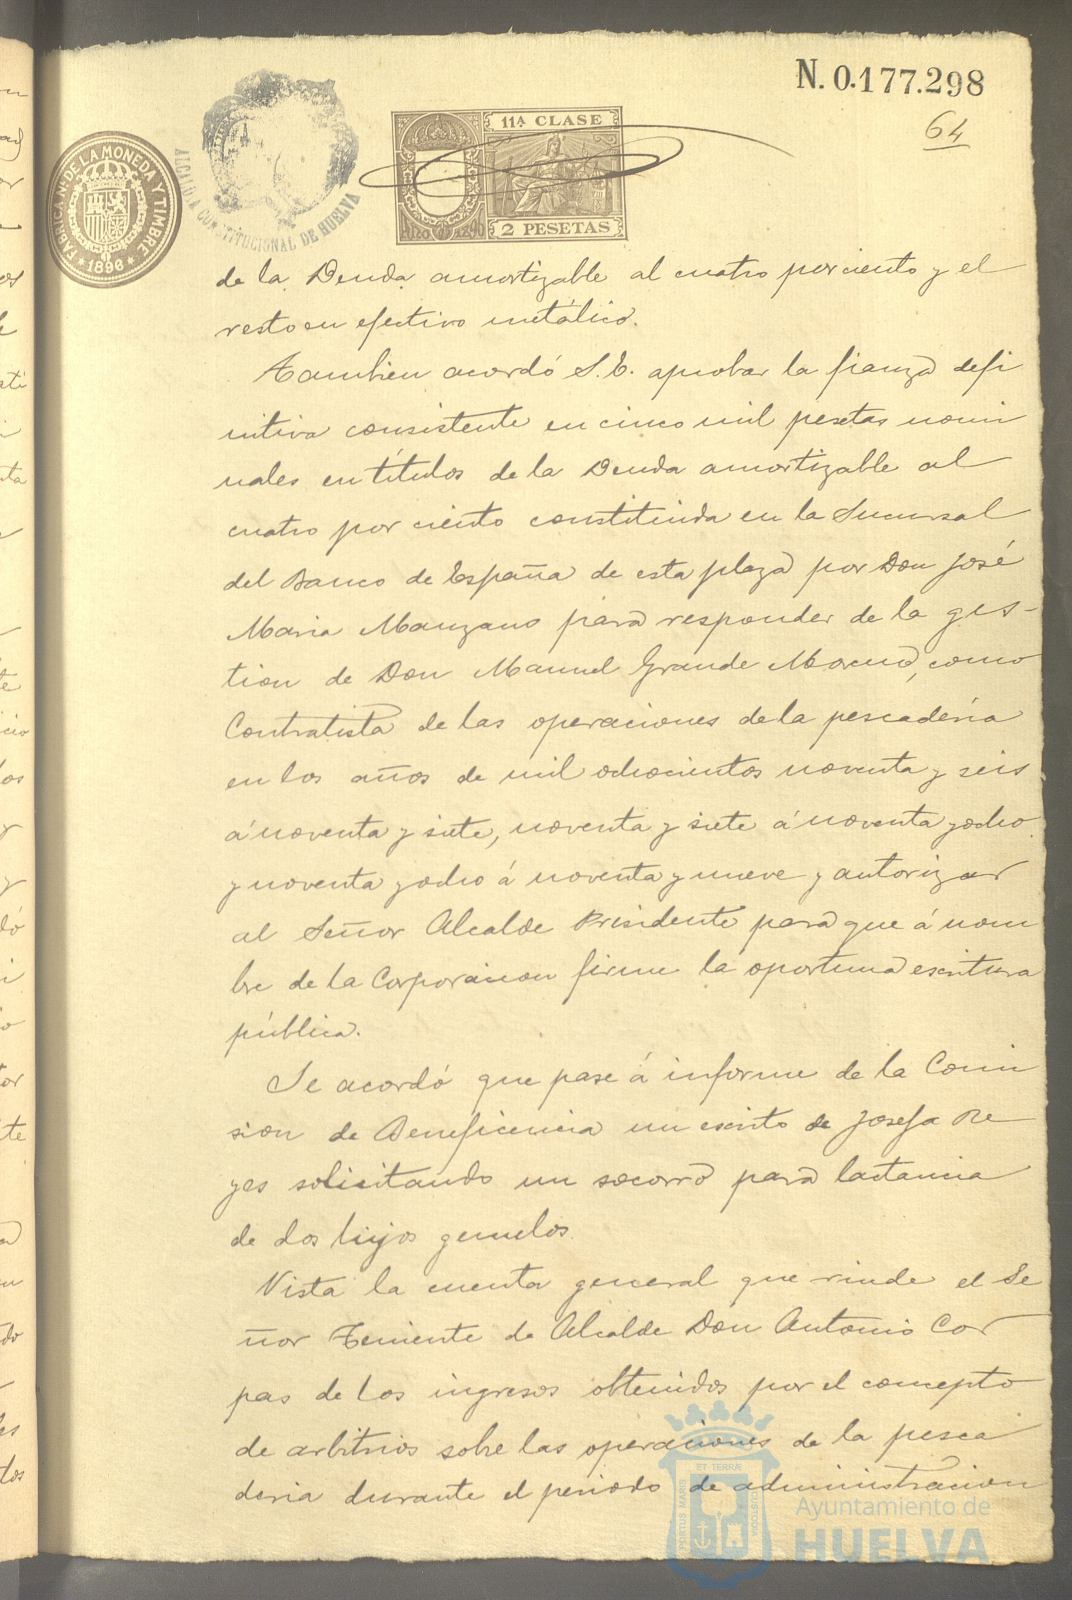 N. 0.177.298
64
11ª CLASE
2 PESETAS
FABRICA Nal DE LA MONEDA Y TIMBRE
* 1896 *
ALCALDIA CONSTITUCIONAL DE HUELVA
de la Deuda amortizable al cuatro por ciento y el
resto en efectivo metálico.
Tambien acordó S.E. aprobar la fianza defi
nitiva consistente en cinco mil pesetas nomi
nales en títulos de la Deuda amortizable al
cuatro por ciento constituida en la Sucursal
del Banco de España de esta plaza por Don José
Maria Manzano para responder de la ges-
tion de Don Manuel Grande Moreno, como
Contratista de las operaciones de la pescadería
en los años de mil ochocientos noventa y seis
á noventa y siete, noventa y siete á noventa y ocho
y noventa y ocho á noventa y nueve y autorizar
al Señor Alcalde Presidente para que á nom
bre de la Corporacion firme la oportuna escritura
pública.
Se acordó que pase á informe de la Comi
sion de Beneficencia un escrito de Josefa Re
yes solicitando un socorro para lactancia
de dos hijos gemelos.
Vista la cuenta general que rinde el Se
ñor Teniente de Alcalde Don Antonio Cor
pas de los ingresos obtenidos por el concepto
de arbitrios sobre las operaciones de la pesca
deria durante el periodo de administracion
PORTUS MARIS ET TERRÆ CUSTODIA
Ayuntamiento de
HUELVA